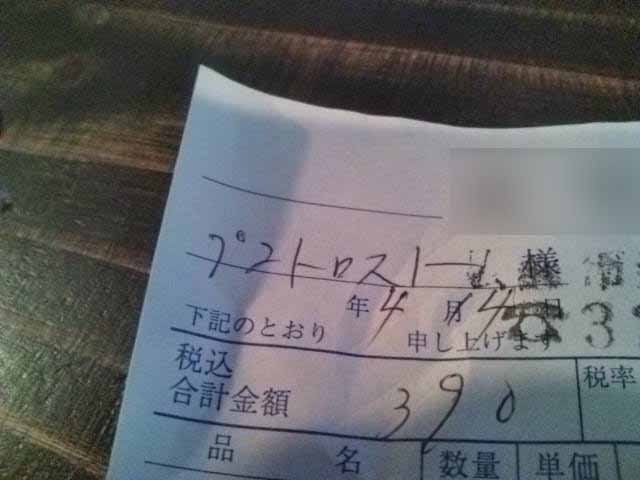 プストロストール 様
年 4 月 14 日
下記のとおり 申し上げます
税込
合計金額 390 税率
品 名 数量 単価